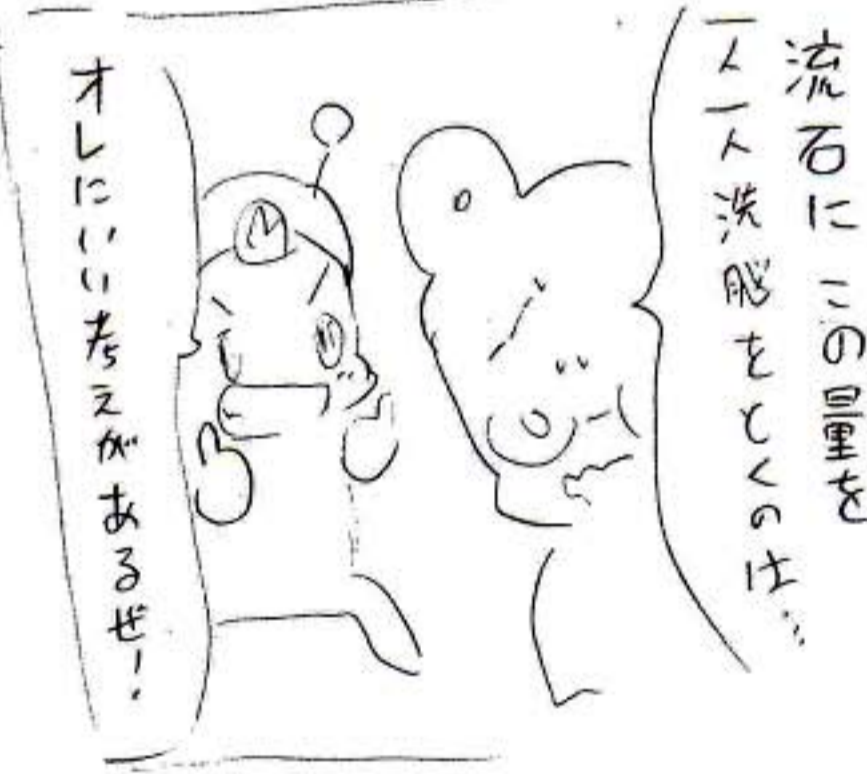 流石に この量を
一人一人洗脳をとくのは…
オレにいい考えがあるぜ!
M